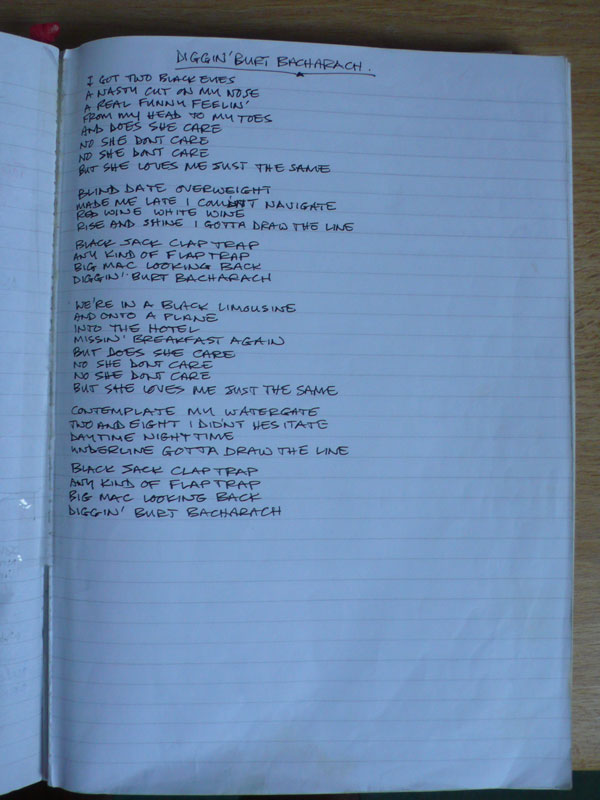 DIGGIN' BURT BACHARACH.
I GOT TWO BLACK EYES
A NASTY CUT ON MY NOSE
A REAL FUNNY FEELIN'
FROM MY HEAD TO MY TOES
AND DOES SHE CARE
NO SHE DONT CARE
NO SHE DONT CARE
BUT SHE LOVES ME JUST THE SAME
BLIND DATE OVERWEIGHT
MADE ME LATE I COULDN'T NAVIGATE
RED WINE WHITE WINE
RISE AND SHINE I GOTTA DRAW THE LINE
BLACK JACK CLAP TRAP
ANY KIND OF FLAP TRAP
BIG MAC LOOKING BACK
DIGGIN' BURT BACHARACH
WE'RE IN A BLACK LIMOUSINE
AND ONTO A PLANE
INTO THE HOTEL
MISSIN' BREAKFAST AGAIN
BUT DOES SHE CARE
NO SHE DONT CARE
NO SHE DONT CARE
BUT SHE LOVES ME JUST THE SAME
CONTEMPLATE MY WATERGATE
TWO AND EIGHT I DIDN'T HESITATE
DAYTIME NIGHT TIME
UNDERLINE GOTTA DRAW THE LINE
BLACK JACK CLAP TRAP
ANY KIND OF FLAP TRAP
BIG MAC LOOKING BACK
DIGGIN' BURT BACHARACH